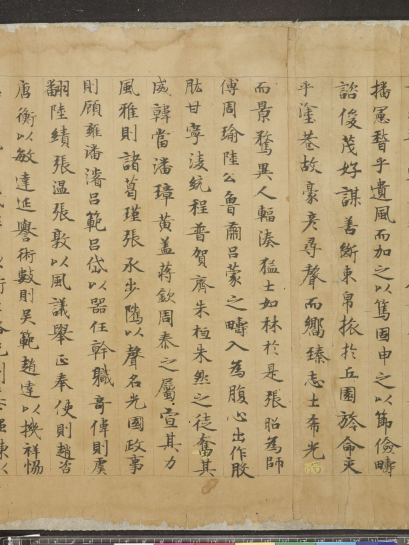 播憲稽乎遺風而加之以篤固申之以節儉疇
諮俊茂好謀善斷東帛旅於丘園旌命交
乎塗巷故豪彥尋聲而嚮臻志士希光
而景騖異人輻湊猛士如林於是張昭為師
傅周瑜陸公魯肅呂蒙之疇入為腹心出作股
肱甘寧淩統程普賀齊朱桓朱然之徒奮其
威韓當潘璋黃蓋蔣欽周泰之屬宣其力
風雅則諸葛瑾張承步騭以聲名光國政事
則顧雍潘濬呂範呂岱以器任幹職奇偉則虞
翻陸績張温張敦以風議舉正奉使則趙咨
衡以敏達延譽術數則吳範趙達以禨祥協